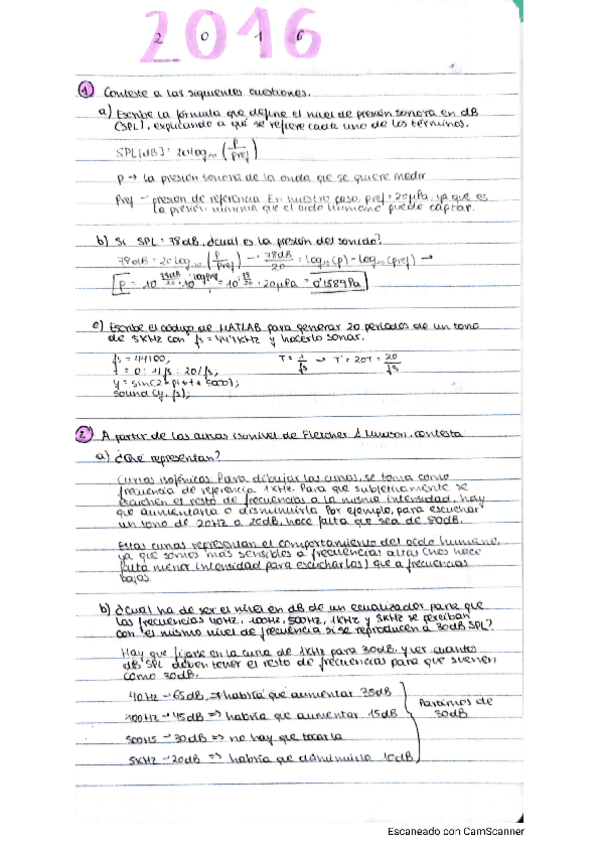 2016
2 0 1 6
1 Conteste a las siguientes cuestiones.
a) Escribe la fórmula que define el nivel de presión sonora en dB
(SPL), explicando a qué se refiere cada uno de los términos.
SPL[dB] = 20log10 (p/pref)
p → la presión sonora de la onda que se quiere medir
Pref → presión de referencia. En nuestro caso, pref = 20μPa, ya que es
la presión mínima que el oído humano puede captar.
b) Si SPL = 78dB, ¿cuál es la presión del sonido?
78dB = 20log10 (p/pref) → 78dB/20 = log10(p) - log10(pref) →
= 20μPa = 0'1589Pa
c) Escribe el código de MATLAB para generar 20 periodos de un tono
de 5KHz con fs = 44'1KHz y hacerlo sonar.
fs = 44100; T = 1/fs → T' = 20T = 20/fs
t = 0:1/fs:20/fs;
y = sin(2*pi*t*5000);
sound(y,fs);
2 A partir de las curvas isonivel de Fletcher & Munson, contesta:
a) ¿Qué representan?
Curvas isofónicas. Para dibujar las curvas, se toma como
frecuencia de referencia 1KHz. Para que subjetivamente se
escuchen el resto de frecuencias a la misma intensidad, hay
que aumentarla o disminuirla. Por ejemplo, para escuchar
un tono de 20Hz a 20dB, hace falta que sea de 80dB.
Estas curvas representan el comportamiento del oído humano,
ya que somos más sensibles a frecuencias altas (nos hace
falta menor intensidad para escucharlas) que a frecuencias
bajas.
b) ¿Cuál ha de ser el nivel en dB de un ecualizador para que
las frecuencias 40Hz, 100Hz, 500Hz, 1KHz y 5KHz se perciban
con el mismo nivel de frecuencia si se reproducen a 30dB SPL?
Hay que fijarse en la curva de 1KHz para 30dB, y ver cuántos
dB SPL deben tener el resto de frecuencias para que suenen
como 30dB.
40Hz → 65dB ⇒ habría que aumentar 35dB
100Hz → 45dB ⇒ habría que aumentar 15dB
Partimos de
30dB
500HS → 30dB ⇒ no hay que tocarla
5KHz → 20dB ⇒ habría que disminuirla 10dB
Escaneado con CamScanner